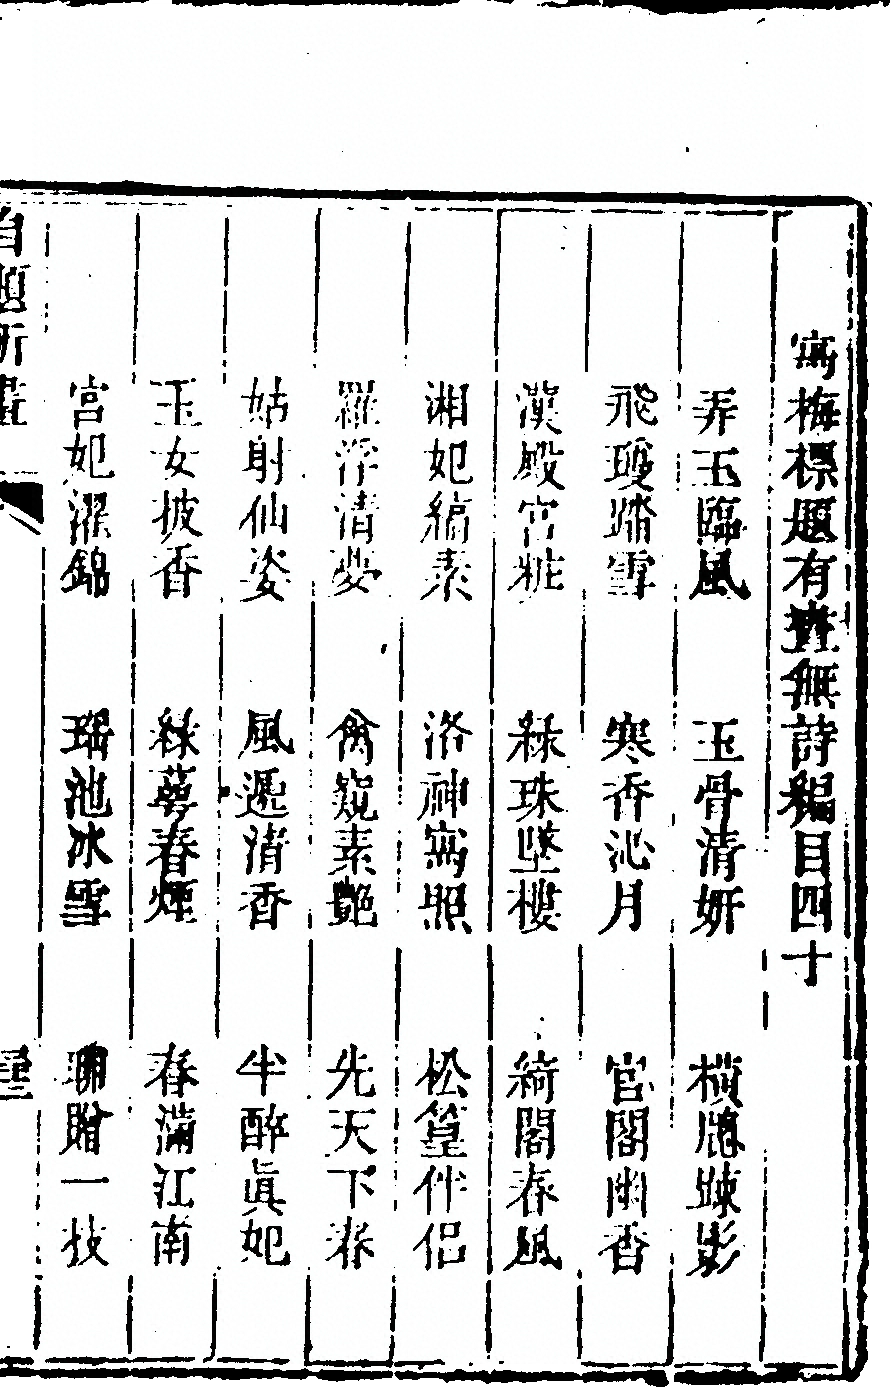 寫梅標題有畫無詩編目四十
弄玉臨風　玉骨清妍　橫牕踈影
飛瓊踏雪　寒香沁月　官閣幽香
漢殿宮粧　綠珠墜樓　綺閣春風
湘妃縞素　洛神寫照　松篁伴侶
羅浮清夢　禽窺素艷　先天下春
姑射仙姿　風遞清香　半醉眞妃
玉女披香　綠萼春煙　春滿江南
宮妃濯錦　瑶池冰雪　聊贈一枝
自題所畫